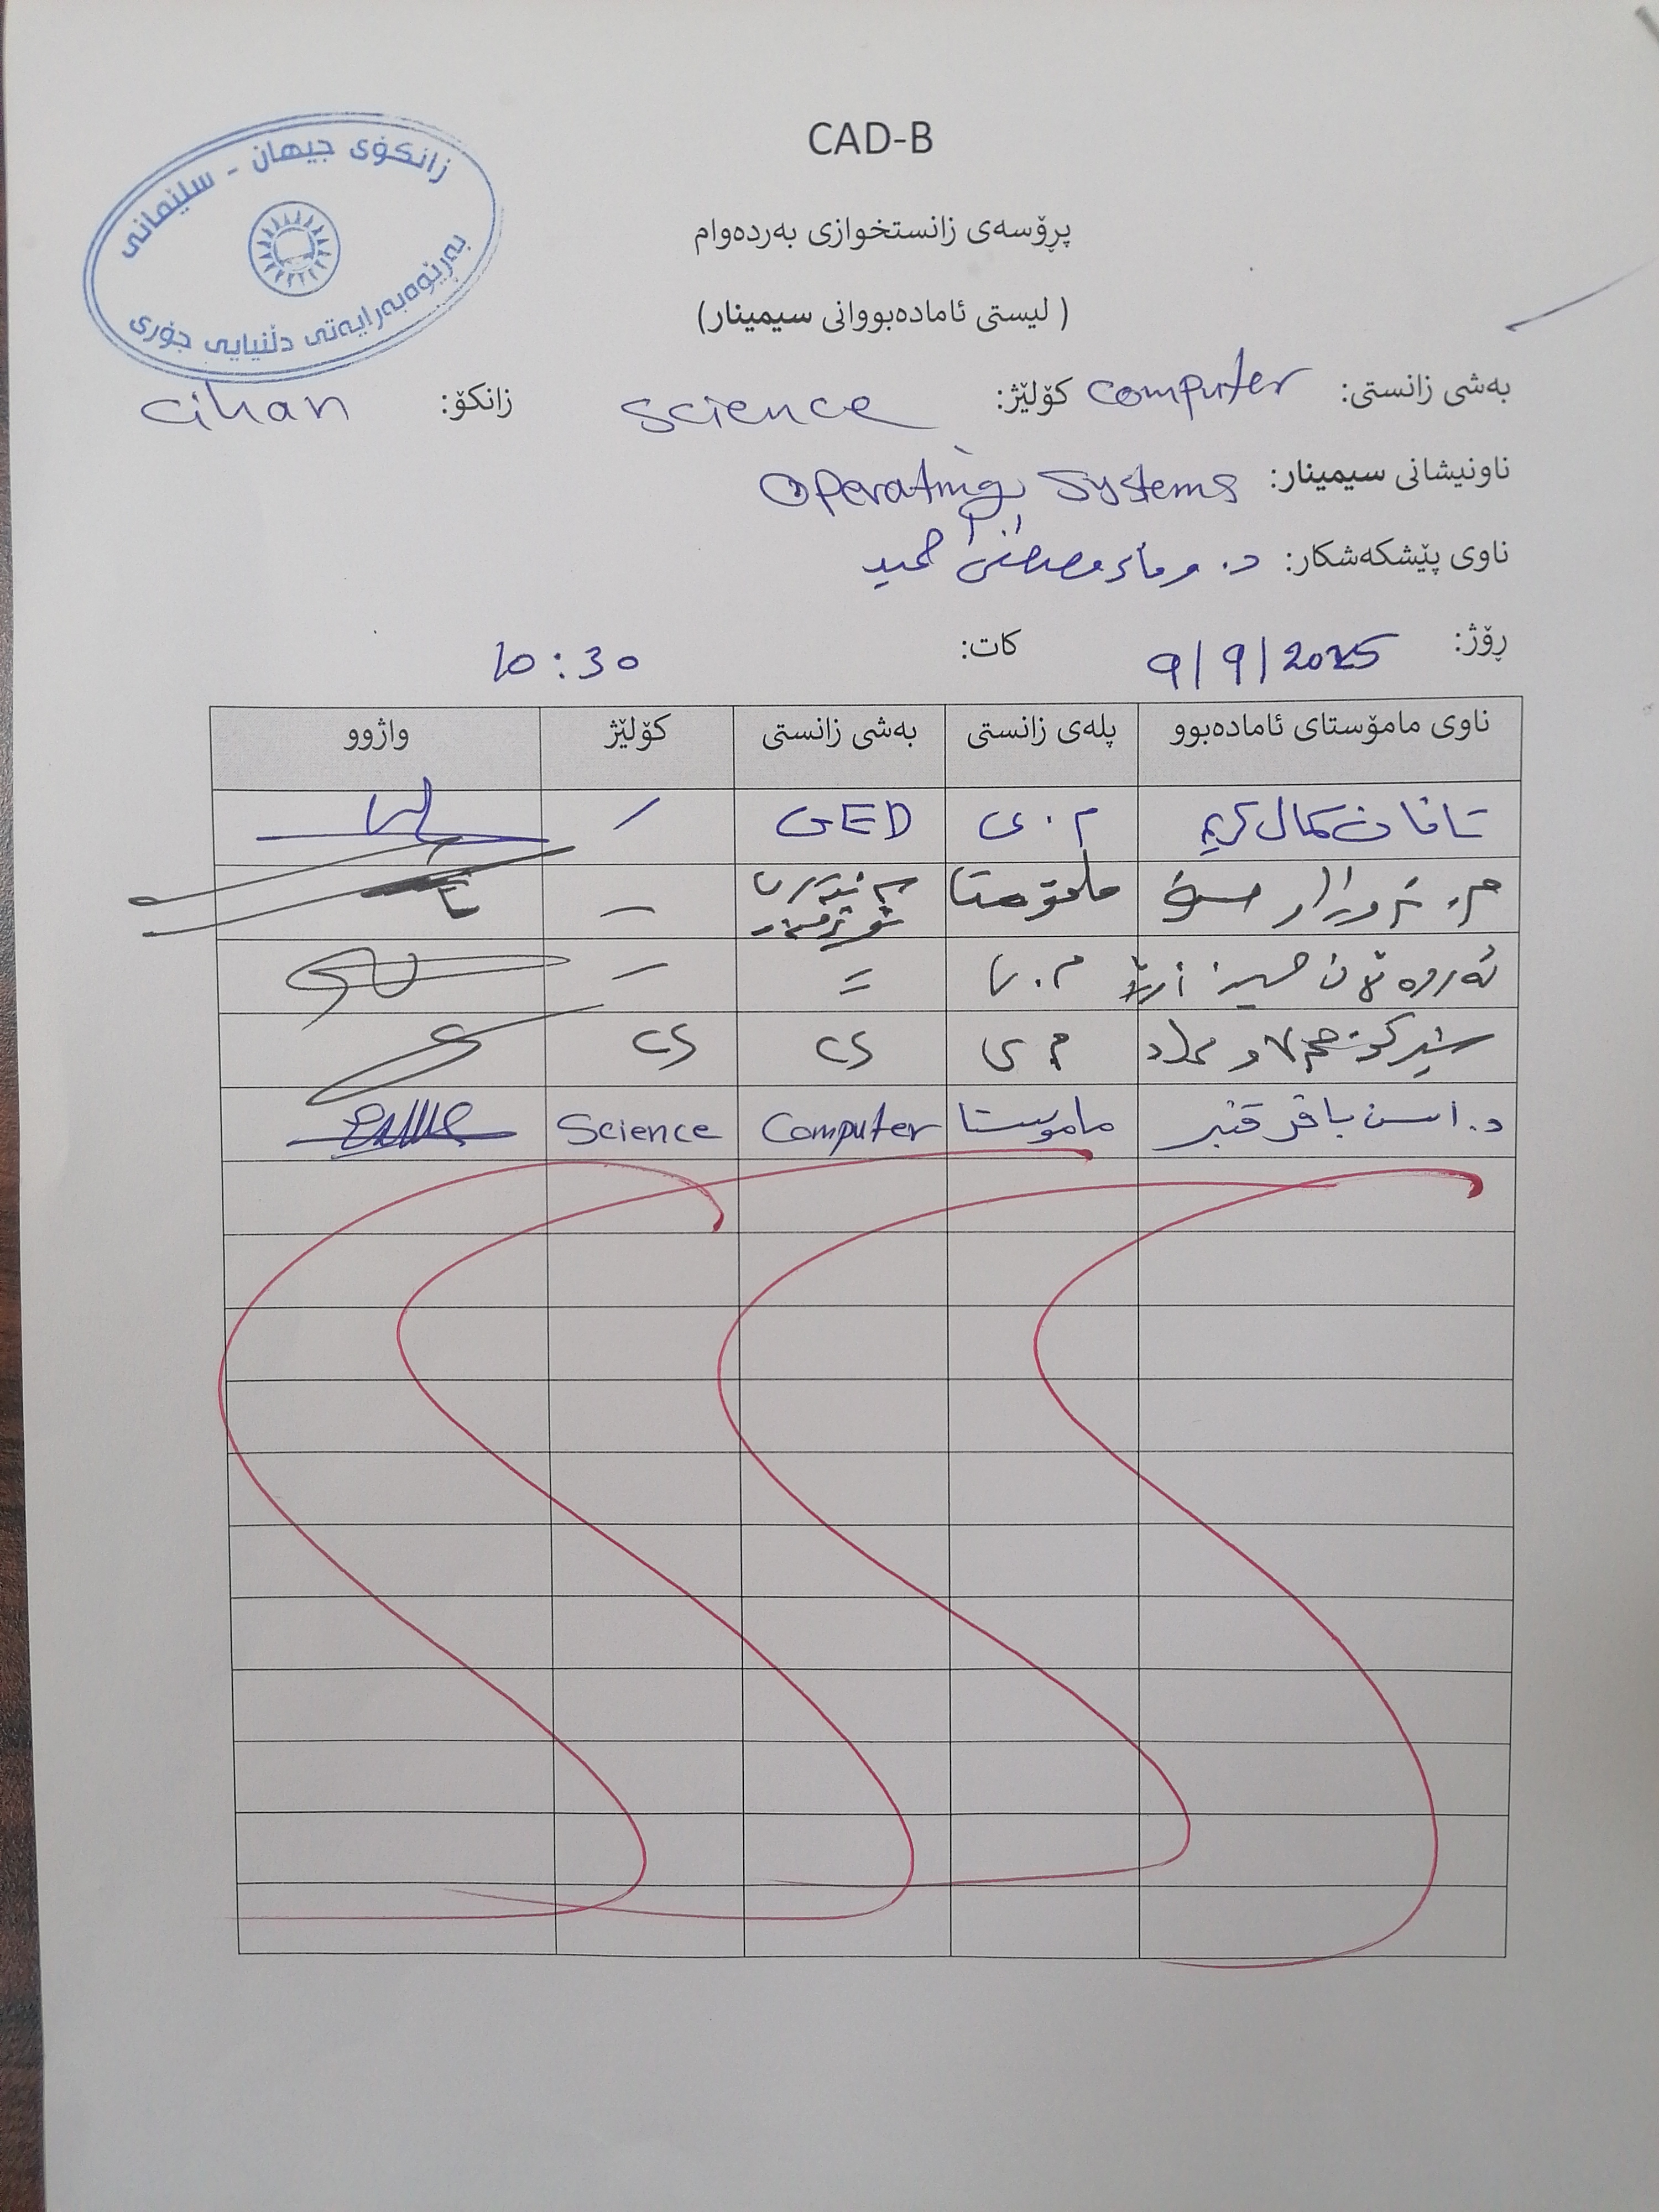 زانکۆی جیهان - سلێمانی
بەڕێوەبەرایەتی دڵنیایی جۆری
CAD-B
پڕۆسەی زانستخوازی بەردەوام
( لیستی ئامادەبووانی سیمینار)
بەشی زانستی: Computer کۆلێژ: Science زانکۆ: Cihan
ناونیشانی سیمینار: Operating Systems
ناوی پێشکەشکار: د.
ڕۆژ: 9/9/2025 کات: 10:30
ناوی مامۆستای ئامادەبوو پلەی زانستی بەشی زانستی کۆلێژ واژوو
کمال کریم م.ی GED
مامۆستا
م.ی =
م ی CS CS
د. باقر قنبر مامۆستا Computer Science